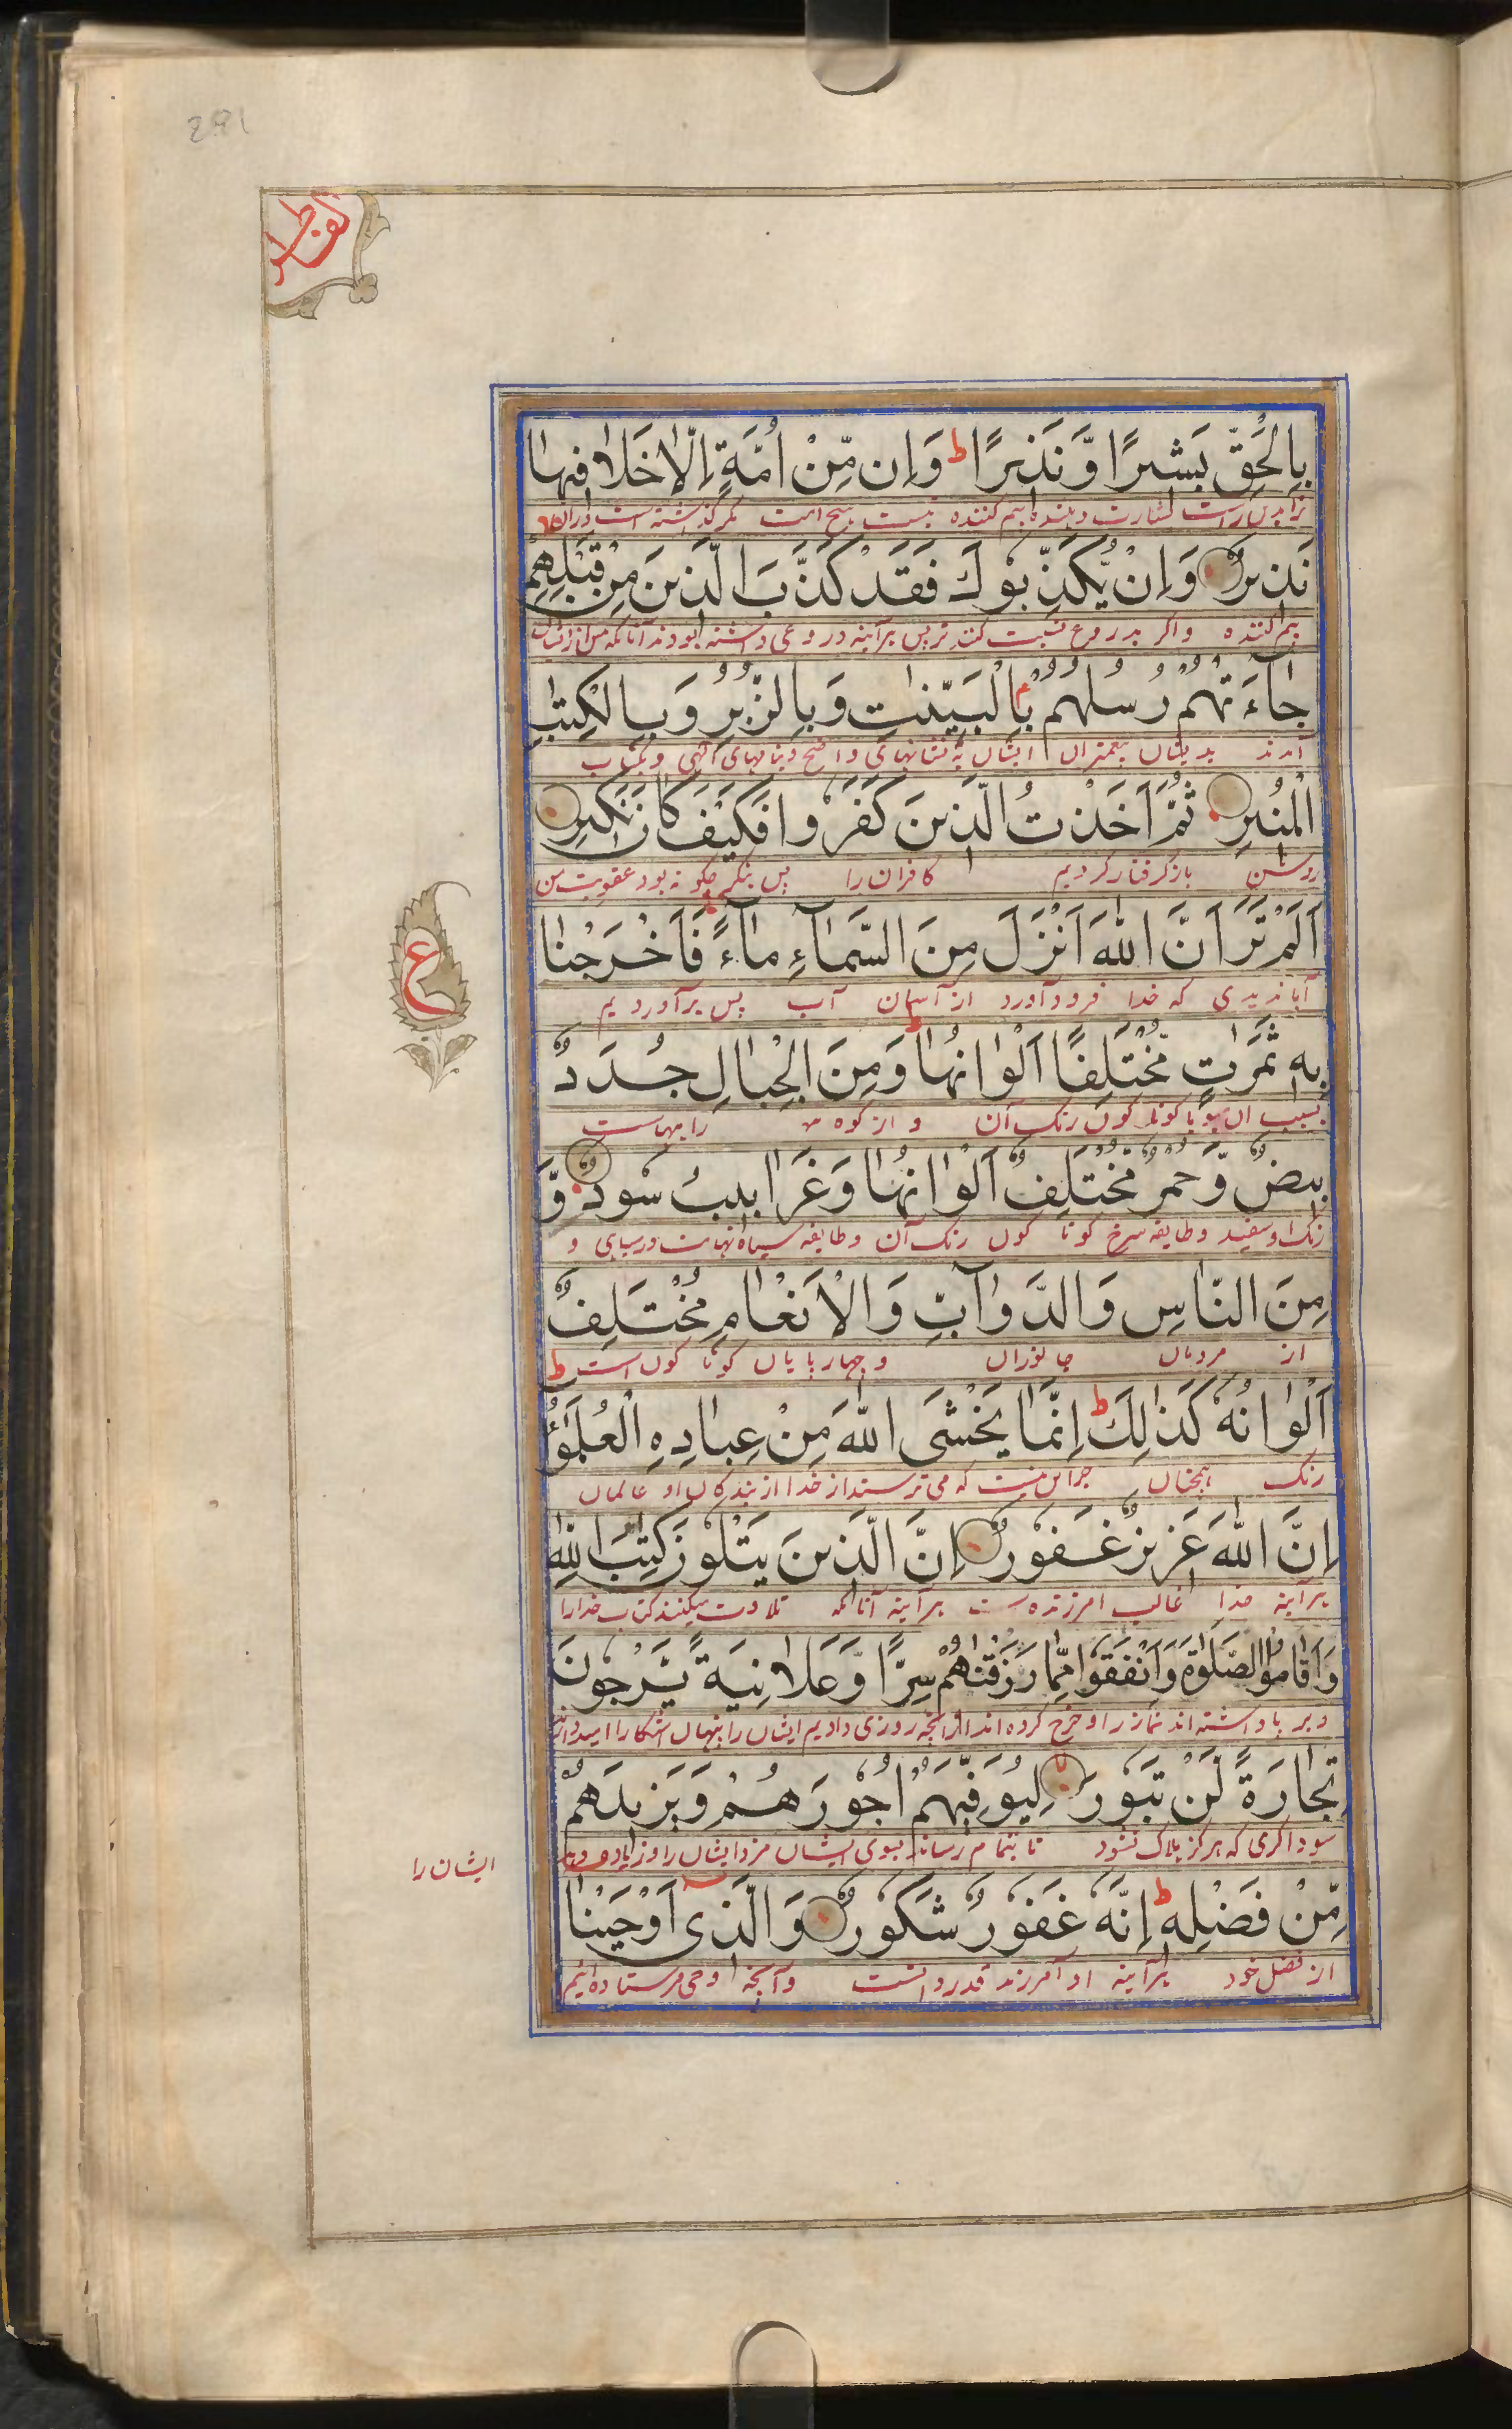 281
الفاطر
بِالْحَقِّ بَشِيرًا وَّنَذِيرًا ط وَاِن مِّنْ اُمَّةٍ اِلَّا خَلَا فِيهَا
بدین راست بشارت دهنده و بیم کننده نیست هیچ امت مگر گذشته است دران
نَذِيرٌ وَاِنْ يُّكَذِّبُوكَ فَقَدْ كَذَّبَ الَّذِينَ مِن قَبْلِهِمْ
بیم کننده و اگر بدروغ نسبت کنند ترا پس هر آینه دروغی داشته بودند آنانکه
جَاءَتْهُمْ رُسُلُهُمْ بِالْبَيِّنٰتِ وَبِالزُّبُرِ وَبِالْكِتٰبِ
آمدند بدیشان پیغمبران ایشان به نشانهای واضح و بنامهای الهی و بکتاب
الْمُنِيرِ ثُمَّ اَخَذْتُ الَّذِينَ كَفَرُوا فَكَيْفَ كَانَ نَكِيرِ
روشن باز گرفتار کردیم کافران را پس بنگر چگونه بود عقوبت من
ع
اَلَمْ تَرَ اَنَّ اللّٰهَ اَنْزَلَ مِنَ السَّمَاۤءِ مَاۤءً فَاَخْرَجْنَا
آیا ندیدی که خدا فرود آورد از آسمان آب پس بر آوردیم
بِهٖ ثَمَرٰتٍ مُّخْتَلِفًا اَلْوَانُهَا وَمِنَ الْجِبَالِ جُدَدٌ
بسبب آن میوها گونا گون رنگ آن و از کوه راههاست
بِيضٌ وَّحُمْرٌ مُّخْتَلِفٌ اَلْوَانُهَا وَغَرَابِيبُ سُودٌ وَّ
رنگ او سفید و طایفه سرخ گونا گون رنگ آن و طایفه سیاه نهایت در سیاهی و
مِنَ النَّاسِ وَالدَّوَآبِّ وَالْاَنْعَامِ مُخْتَلِفٌ
از مردمان جانوران و چهارپایان گونا گون است ط
اَلْوَانُهٗ كَذٰلِكَ ط اِنَّمَا يَخْشَى اللّٰهَ مِنْ عِبَادِهِ الْعُلَمٰۤؤُ
رنگ همچنان جز این نیست که می ترسند از خدا از بندگان او عالمان
اِنَّ اللّٰهَ عَزِيزٌ غَفُورٌ اِنَّ الَّذِينَ يَتْلُونَ كِتٰبَ اللّٰهِ
هر آینه خدا غالب امرزنده است هر آینه آنانکه تلاوت میکنند کتاب خدا را
وَاَقَامُوا الصَّلٰوةَ وَاَنْفَقُوا مِمَّا رَزَقْنٰهُمْ سِرًّا وَّعَلَانِيَةً يَّرْجُونَ
و بر پا داشته اند نماز را و خرج کرده اند از آنچه روزی دادیم ایشان را پنهان آشکارا امیدوارند
تِجَارَةً لَّنْ تَبُورَ لِيُوَفِّيَهُمْ اُجُورَهُمْ وَيَزِيدَهُمْ
سوداگری که هرگز هلاک نشود تا بتمام رساند بسوی ایشان مزد ایشان را و زیاده دهد
ایشان را
مِّنْ فَضْلِهٖ ط اِنَّهٗ غَفُورٌ شَكُورٌ وَالَّذِي اَوْحَيْنَا
از فضل خود هر آینه او آمرزند قدردانست و آنچه وحی فرستاده ایم